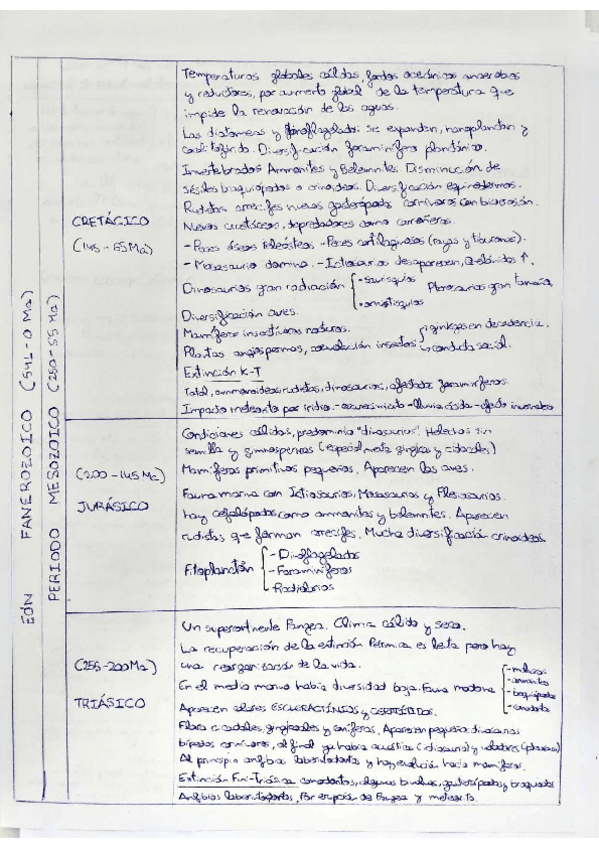 EÓN FANEROZOICO (541-0 Ma)
PERIODO MESOZOICO (250-55 Ma)
CRETÁCICO
(145-65 Ma)
Temperaturas globales cálidas, fondos oceánicos anaerobios
y reductores, por aumento global de la temperatura que
impide la renovación de las aguas.
Las diatomeas y dinoflagelados se expanden, nanoplancton y
Diversificación foraminífero planctónico.
Invertebrados Ammonites y Belemnites. Disminución de
sésiles braquiópodos o crinoideos. Diversificación equinodermos.
Rudistas arrecifes nuevos gasterópodos carnívoros con
Nuevos crustáceos, depredadores como carroñeros.
-Peces óseos teleósteos -Peces cartilaginosos (rayas y tiburones).
-Mosasaurio domina. -Ictiosaurios desaparecen, Quelónidos ↑.
Dinosaurios gran radiación
-saurisquios
-ornitisquios
Pterosaurios gran tamaño,
Diversificación aves.
Mamíferos insectívoros
Plantas angiospermas, coevolución insectos
ginkgos en decadencia.
conducta social.
Extinción K-T
Total, ammonoideos, rudistas, dinosaurios, afectados foraminíferos
Impacto meteorito por iridio. -oscurecimiento -lluvia ácida -efecto invernadero
(200-145 Ma)
JURÁSICO
Condiciones cálidas, predominio "dinosaurios". Helechos sin
semilla y gimnospermas (especialmente ginkgos y cicadales)
Mamíferos primitivos pequeños. Aparecen las aves.
Fauna marina con Ictiosaurios, Mosasaurios y Plesiosaurios.
hay cefalópodos como ammonites y belemnites. Aparecen
rudistas que forman arrecifes. Mucha diversificación crinoideos
Fitoplancton
-Dinoflagelados
-Foraminíferos
-Radiolarios
(255-200 Ma)
TRIÁSICO
Un supercontinente Pangea. Clima cálido y seco.
La recuperación de la extinción Pérmica es lenta pero hay
una reorganización de la vida.
En el medio marino había diversidad baja. Fauna moderna
-moluscos
-ammonites
-braquiópodos
-conodontos
Aparecen corales ESCLERACTÍNIDOS y CERATÍTIDOS.
Flora cicadales, ginkgoales y coníferas. Aparecen pequeños dinosaurios
bípedos carnívoros, al final ya había acuáticos (ictiosaurio) y voladores
Al principio anfibios laberintodontos y hay evolución hacia mamíferos.
Extinción Fini-Triásica conodontos, algunos bivalvos, gasterópodos y braquiópodos
Anfibios laberintodontos, Por erupción de Pangea y meteorito.